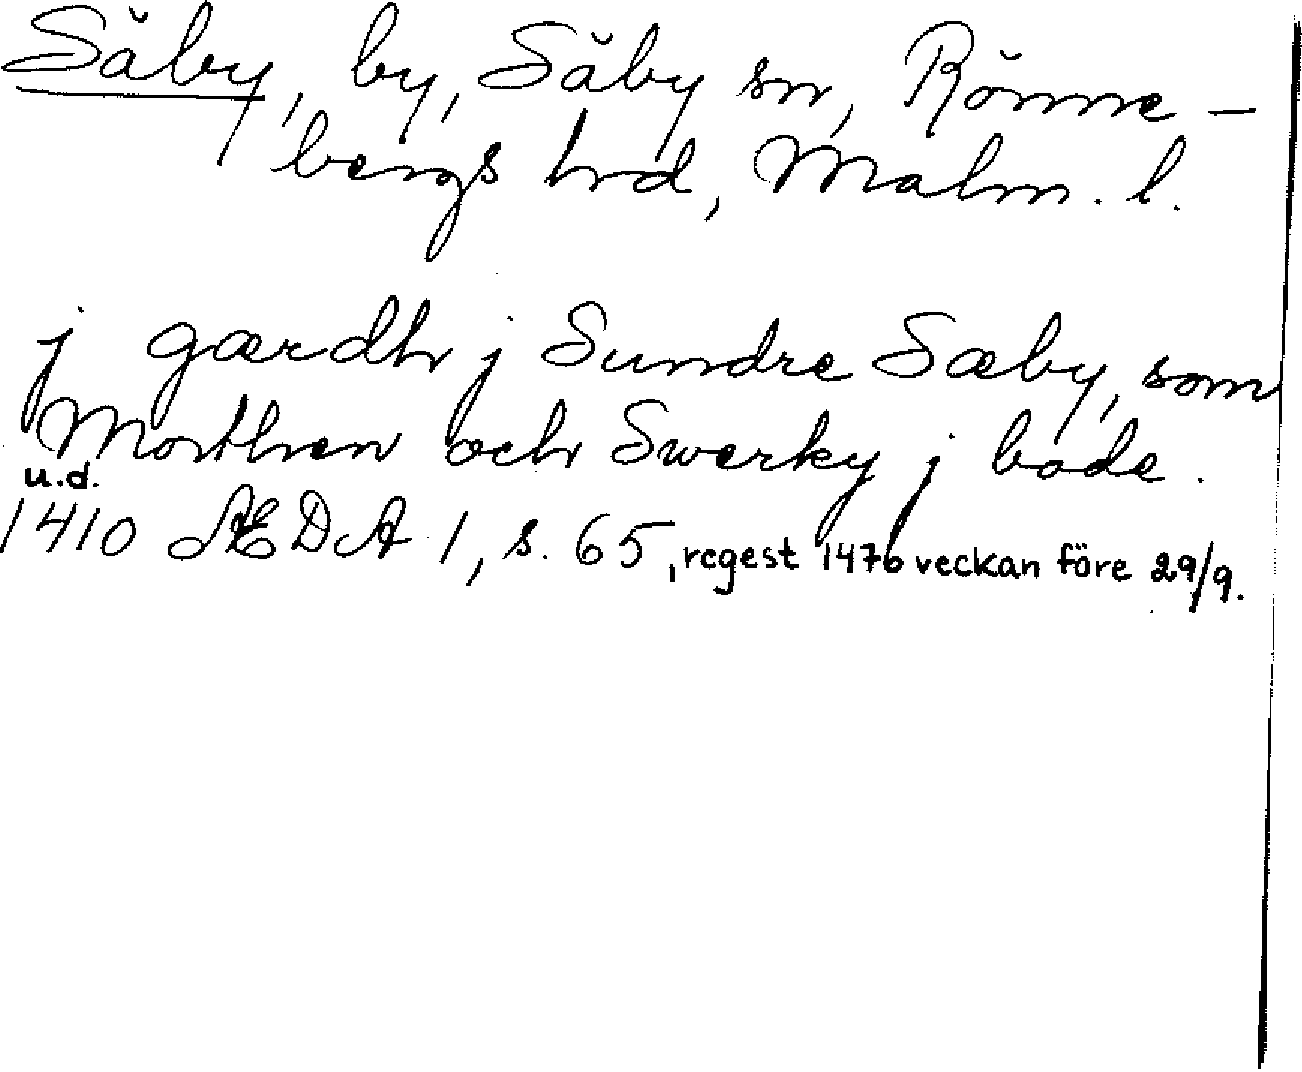 Säby, by, Säby sn, Rönne-
bergs hrd, Malm. l.
j gærdh j Sundre Sæby, som
Morthen och Swerky j bode.
u.d.
1410 ÆDA 1, s. 65, regest 1476 veckan före 29/9.